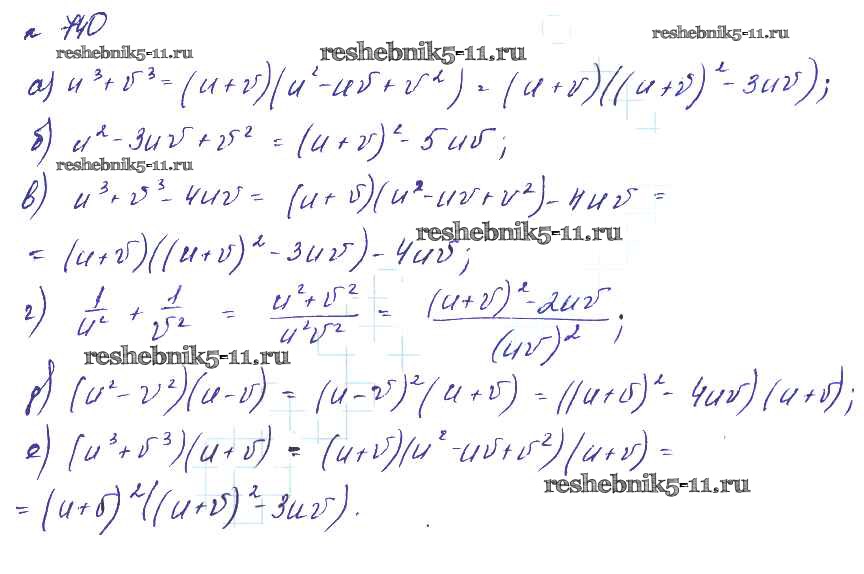 № 740
reshebnik5-11.ru reshebnik5-11.ru reshebnik5-11.ru
а) u³ + v³ = (u + v)(u² - uv + v²) = (u + v)((u + v)² - 3uv);
б) u² - 3uv + v² = (u + v)² - 5uv;
reshebnik5-11.ru
в) u³ + v³ - 4uv = (u + v)(u² - uv + v²) - 4uv =
reshebnik5-11.ru
= (u + v)((u + v)² - 3uv) - 4uv;
г) 1/u² + 1/v² = (u² + v²)/(u²v²) = ((u + v)² - 2uv)/(uv)²;
reshebnik5-11.ru
д) (u² - v²)(u - v) = (u - v)²(u + v) = ((u + v)² - 4uv)(u + v);
е) (u³ + v³)(u + v) = (u + v)(u² - uv + v²)(u + v) =
reshebnik5-11.ru
= (u + v)²((u + v)² - 3uv).